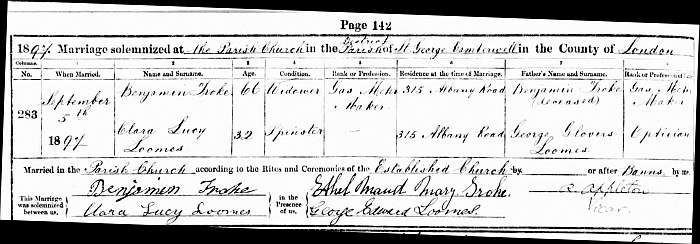 Page 142
1897 Marriage solemnized at the Parish Church in the District Parish of St George Camberwell in the County of London
Columns. 1 2 3 4 5 6 7 8
No. When Married. Name and Surname. Age. Condition. Rank or Profession. Residence at the time of Marriage. Father's Name and Surname. Rank or Profession of
283 September 5th 1897 Benjamin Froke 66 Widower Gas Meter Maker 315 Albany Road Benjamin Froke (deceased) Gas Meter Maker
Clara Lucy Loomes 32 Spinster — 315 Albany Road George Glovers Loomes Optician
Married in the Parish Church according to the Rites and Ceremonies of the Established Church by or after Banns by me,
This Marriage was solemnized between us, Benjamin Froke in the Presence of us, Ethel Maud Mary Froke. Appleton
Clara Lucy Loomes George Edward Loomes. Vicar.